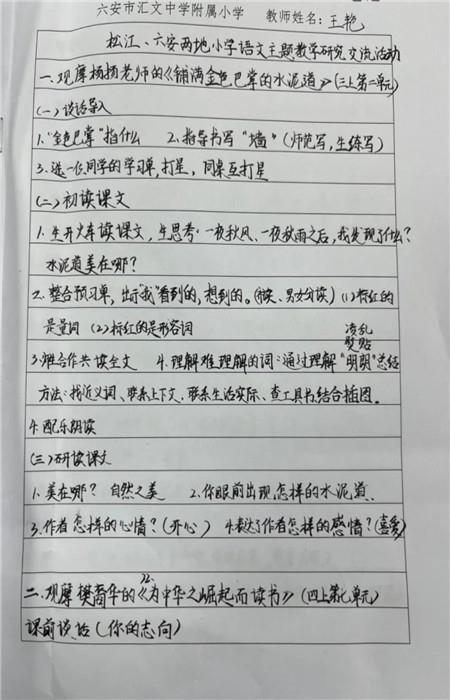 六安市汇文中学附属小学 教师姓名：王艳
松江、六安两地小学语文主题教学研究交流活动
一、观摩杨扬老师的《铺满金色巴掌的水泥道》(三上第二单元)
(一)谈话导入
1."金色巴掌"指什么 2.指导书写"墙"(师范写,生练写)
3.选一位同学的学习单,打星,同桌互打星
(二)初读课文
1.生开火车读课文,生思考:一夜秋风、一夜秋雨之后,我发现了什么?
水泥道美在哪?
2.整合预习单,出示"我"看到的,想到的。(男女分读)(1)标红的
是量词 (2)标红的是形容词
凌乱
熨贴
3.师生合作共读全文 4.理解难理解的词:通过理解"明朗"总结
方法:找近义词、联系上下文、联系生活实际、查工具书、结合插图。
4.配乐朗读
(三)研读课文
1.美在哪? 自然之美 2.你眼前出现怎样的水泥道.
3.作者怎样的心情?(开心) 4.表达了作者怎样的感情?(喜爱)
二、观摩樊裔华的《为中华之崛起而读书》(四上第七单元)
课前谈话(你的志向)